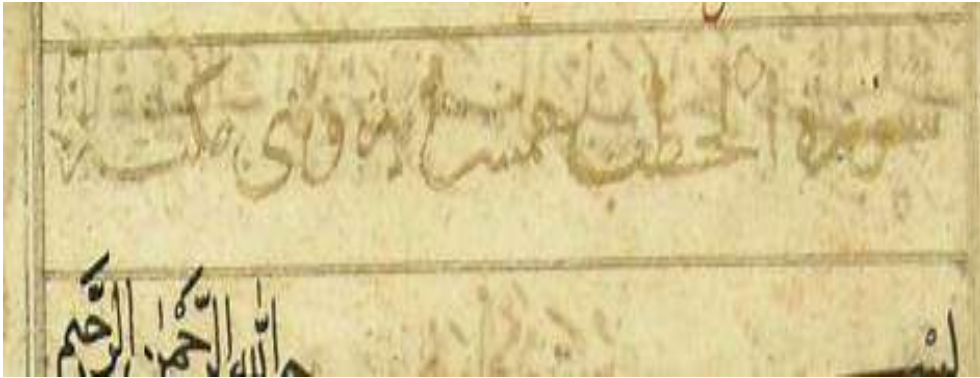 سورة الحطب خمس اية وهي مكية
بِسْم اللّٰهِ الرَّحْمٰنِ الرَّحيم